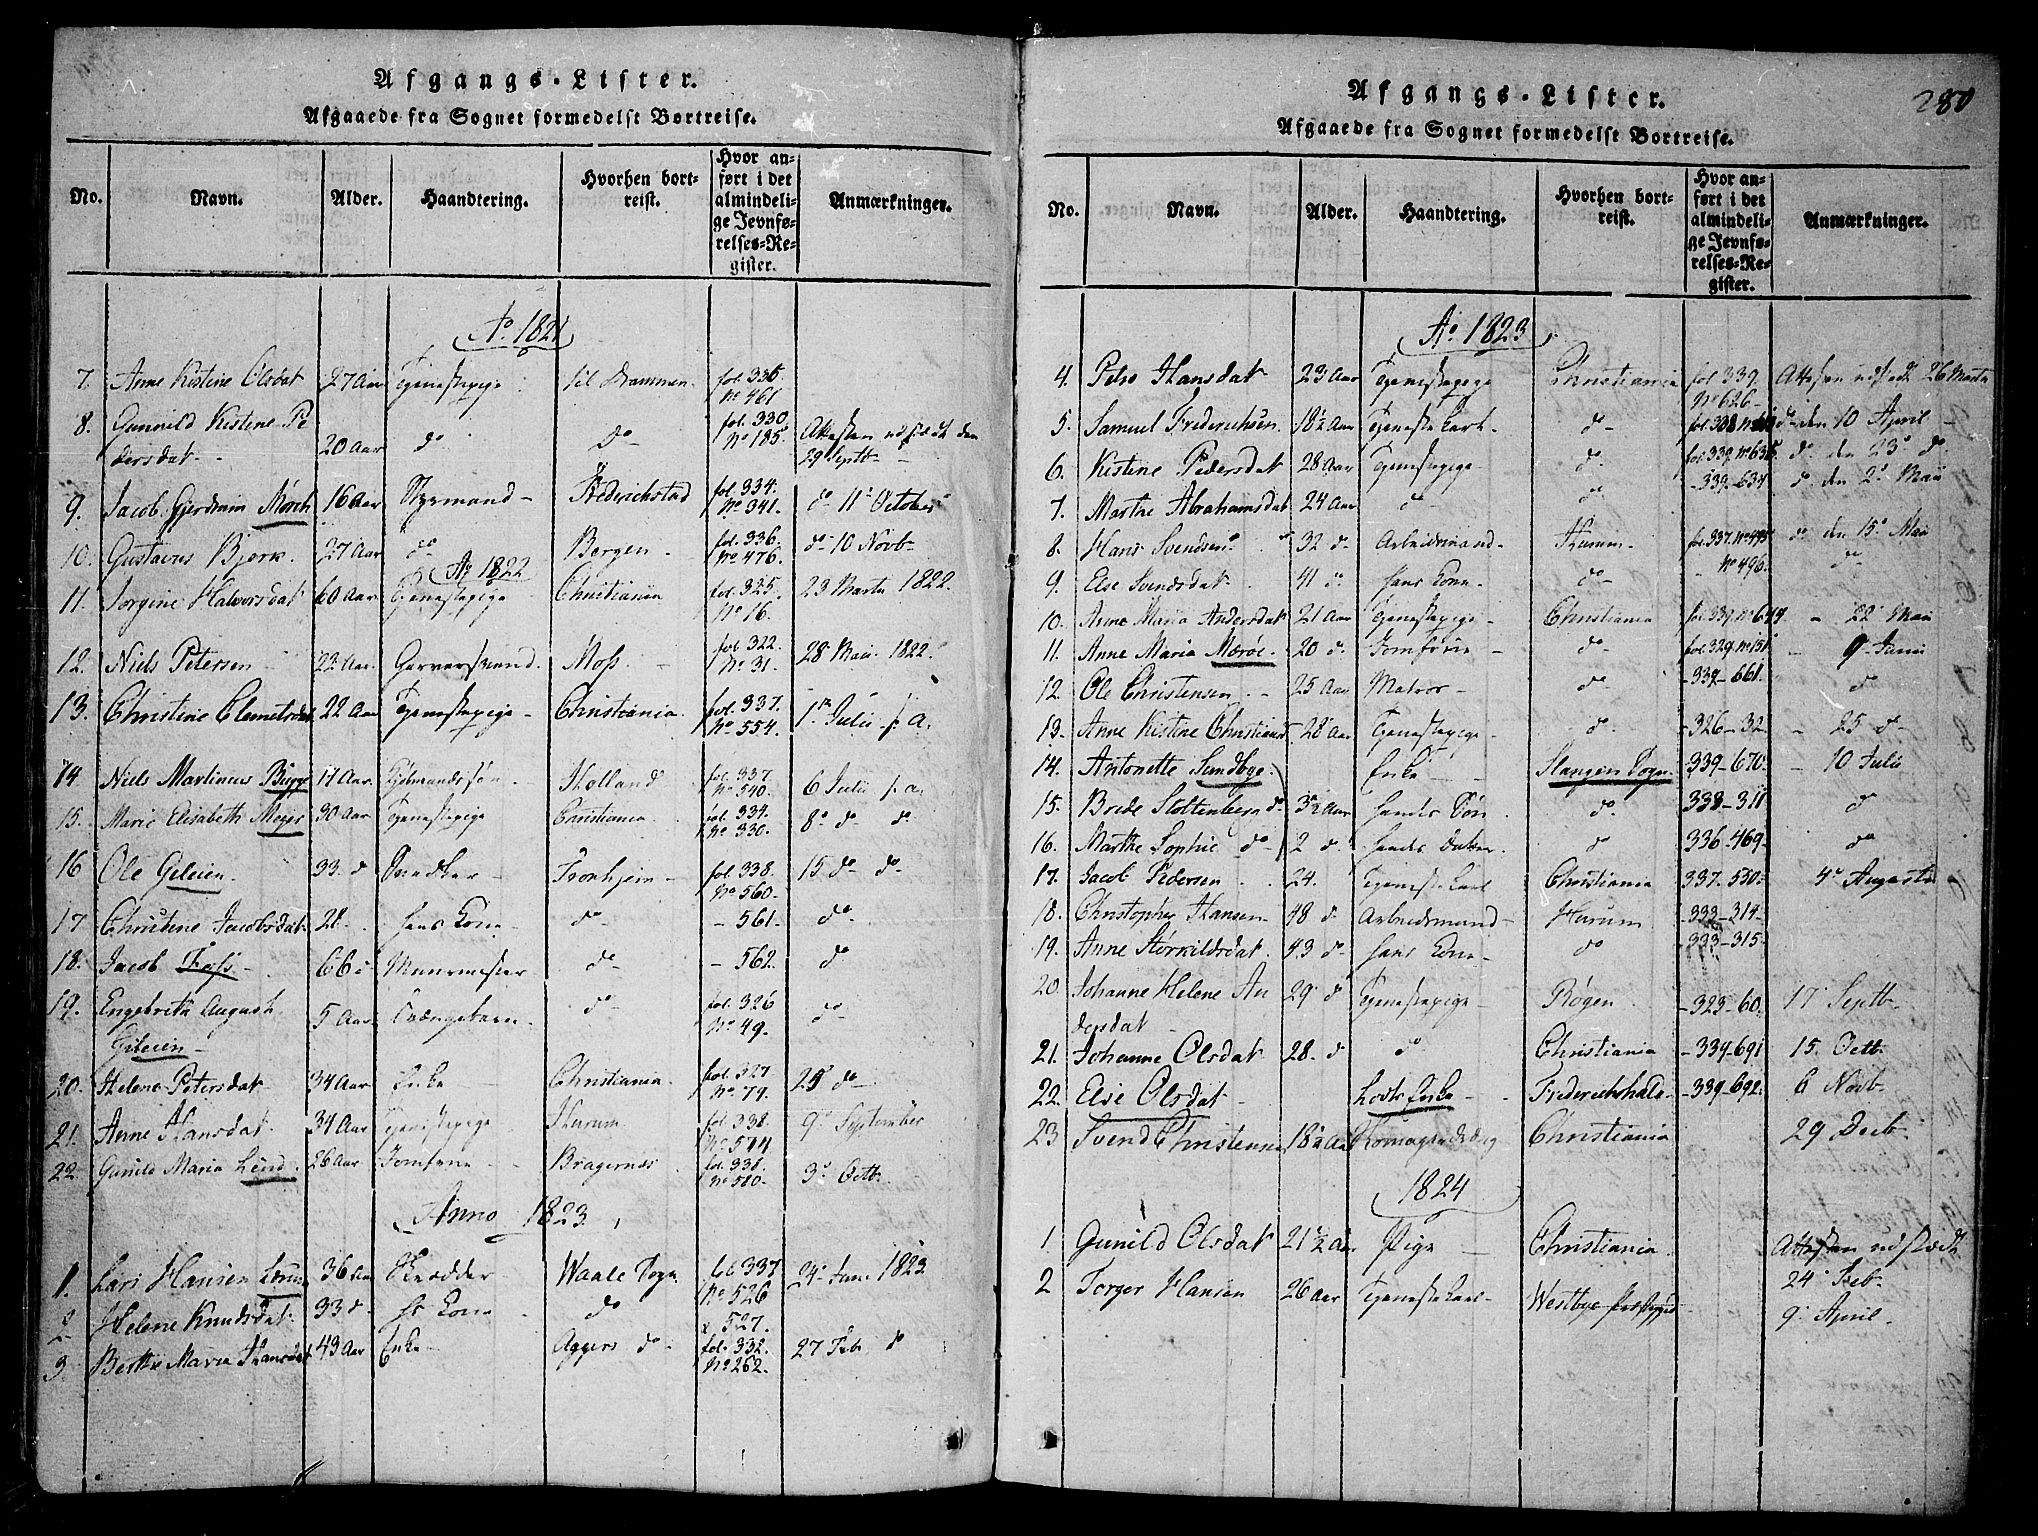 Afgangs-Lister.
Afgaaede fra Sognet formedelst Bortreise.
No. Navn. Alder. Haandtering. Hvorhen bortreist. Hvor anført i det almindelige Jevnførelses-Register. Anmærkninger.
Ao 1821
7. Anne Kistine Olsdat 27 Aar Tjenestepige til Drammen fol. 336. No 461
8. Gunnild Kistine Pedersdat 20 Aar do do fol. 330. No 185. Attesten udstædt den 29 Septb
9. Jacob Gjerdrum Mørch 16 Aar Styrmand Frederichstad fol. 334. No 341. do 11 October
10. Gustavus Bjerk 27 Aar do Bergen fol. 336. No 476. do 10 Novb
Ao 1822
11. Jorgine Halvorsdat 60 Aar Tjenestepige Christiania fol. 325. No 16. 23 Marts 1822.
12. Niels Petersen 22 Aar. Garversvend. Moss fol. 322. No 31. 28 Mai 1822.
13. Christine Clemetsdat 22 Aar Tjenestepige Christiania. fol. 337. No 554. 1 Julii s. a.
14 Niels Martinus Bugge 17 Aar Holland fol. 337. No 540. 6 Julii s. a.
15. Marie Elisabeth Meyer 30 Aar Tjenestepige Christiania fol. 334. No 330. 8 do do
16 Ole Geleien 33 d Snedker Tronhjem fol. 338. No 560. 15 do do
17 Christine Jacobsdat 28. hans Kone do - 561. do
18. Jacob Foss 66 Muurmester do - 562. do
19. Engebreth August Gileien 5 Aar do fol. 326 No 49. do
20. Helene Petersdat 34 Aar Enke Christiania. fol. 327. No 79. 25 do
21. Anne Hansdat 34 Aar Tjenestepige Hurum fol. 338. No 544 9 September
22. Gunild Maria Lund 26 Aar Jomfrue Bragernæs fol. 338. No 580. 3 Octb
Anno 1823
1. Lars Hansen 36 Aar Skrædder Waale Sogn fol 337 No 526 24 Jan. 1823
2 Helene Knudsdat 33 d hs Kone do 527.
3 Berthe Maria Hansdat 43 Aar Enke Aggers do fol. 332. No 262. 27 Feb do
Afgangs-Lister.
280
Afgaaede fra Sognet formedelst Bortreise.
No. Navn. Alder. Haandtering. Hvorhen bortreist. Hvor anført i det almindelige Jevnførelses-Register. Anmærkninger.
Ao 1823
4. Hansdat 23 Aar Tjenestepige Christiania fol 339. No 626 Attesten udstædt 26 Marts
5. Samuel Frederichsen 18½ Aar Tjenestekarl do fol. 338 do den 10 April
6. Kistine Pedersdat 28 Aar Tjenestepige do fol 339. No 635. do den 23 do
7. Marthe Abrahamsdat 24 Aar d do - 339 - 634. do den 2 Mai
8. Hans Svendsen 32 d Arbeidsmand Hurum fol. 337. No 495 do den 15 Mai
9. Else Svendsdat 41 d hans Kone do No 496. do
10. Anne Maria Andersdat 21 Aar Tjenestepige Christiania fol 339. No 644 - 22 Mai
11. Anne Maria Mærøe 20 d. Jomfrue do fol. 329. No 151 - 9 Juni
12. Ole Christensen 25 Aar Matros do - 339 - 661. d
13. Anne Kistine Christians 28 Aar Tjenestepige do - 326 - 32 - 25 d
14. Antonette Sundbye Enke Slangen Sogn 339 - 670. - 10 Julii
15. Brede Stoltenberg do 3½ Aar hendes Søn do. 333 - 311 d
16. Marthe Sophie do 2 d hendes Datter do 336 - 469 do
17. Jacob Pedersen 24. Tjenestekarl Christiania 337 - 530 4 Augusti
18. Christopher Hansen 48 d Arbeidsmand Hurum 333 - 314
19. Anne Størkildsdat 43 d hans Kone do 333 - 315.
20. Johanne Helene Andersdat 29 d Tjenestepige Røgen - 323 - 60. 17 Septb
21. Johanne Olsdat 28. d d Christiania - 339 - 691 15. Octb
22. Else Olsdat Lods Enke Frederichshald - 339 - 692. 6 Novb
23 Svend Christensen 18½ Aar Christiania 29 Decb
1824
1. Gunild Olsdat 21½ Aar Pige Christiania Attesten udstædt 24 Feb
2 Torger Hansen 26 Aar Tjenestekarl Westbye Præstegjæld 9 April